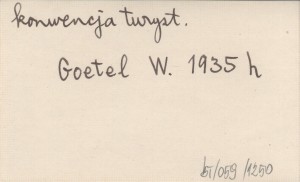 konwencja turyst.
Goetel W. 1935 h
/059/1250